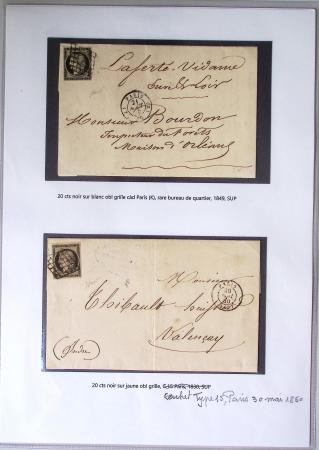 Laferté-Vidame
Eure & Loir
PARIS
Monsieur Bourdon
Inspecteur des Forêts
Maison d'Orléans
20 cts noir sur blanc obl grille càd Paris (K), rare bureau de quartier, 1849, SUP
Monsieur
PARIS
Thibault huissier
Valençay
(Indre)
20 cts noir sur jaune obl grille, C 15 Paris, 1850, SUP
cachet Type 15, Paris 30 mai 1850